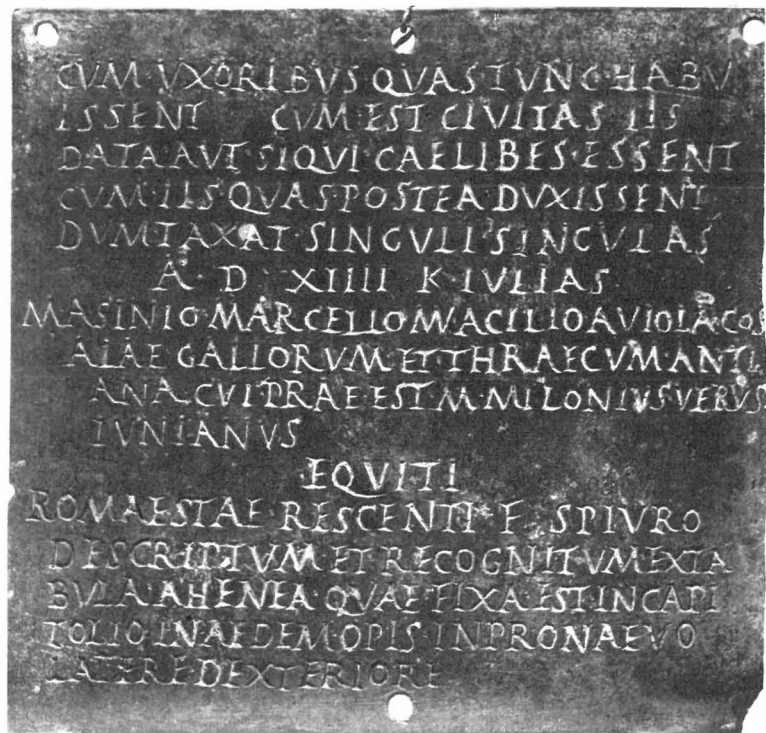 CVM·VXORIBVS QVAS TVNC·HABV
ISSENT CVM·EST CIVITAS IIS
DATA·AVT·SIQVI·CAELIBES·ESSENT
CVM·IIS·QVAS POSTEA DVXISSENT
DVMTAXAT·SINGVLI·SINGVLAS
A·D·XIIII K·IVLIAS
M ASINIO·MARCELLO M ACILIO AVIOLA·COS
ALAE GALLORVM·ET·THRAECVM·ANTI
ANA·CVI PRAE EST·M·MILONIVS VERVS
IVNIANVS
EQVITI
ROMAESTAE RESCENTI·F SPIVRO
DESCRIPTVM ET RECOGNITVM EX TA
BVLA AHENEA·QVAE FIXA EST·IN CAPI
TOLIO IN AEDEM·OPIS IN PRONAEVO
LATERE DEXTERIORE